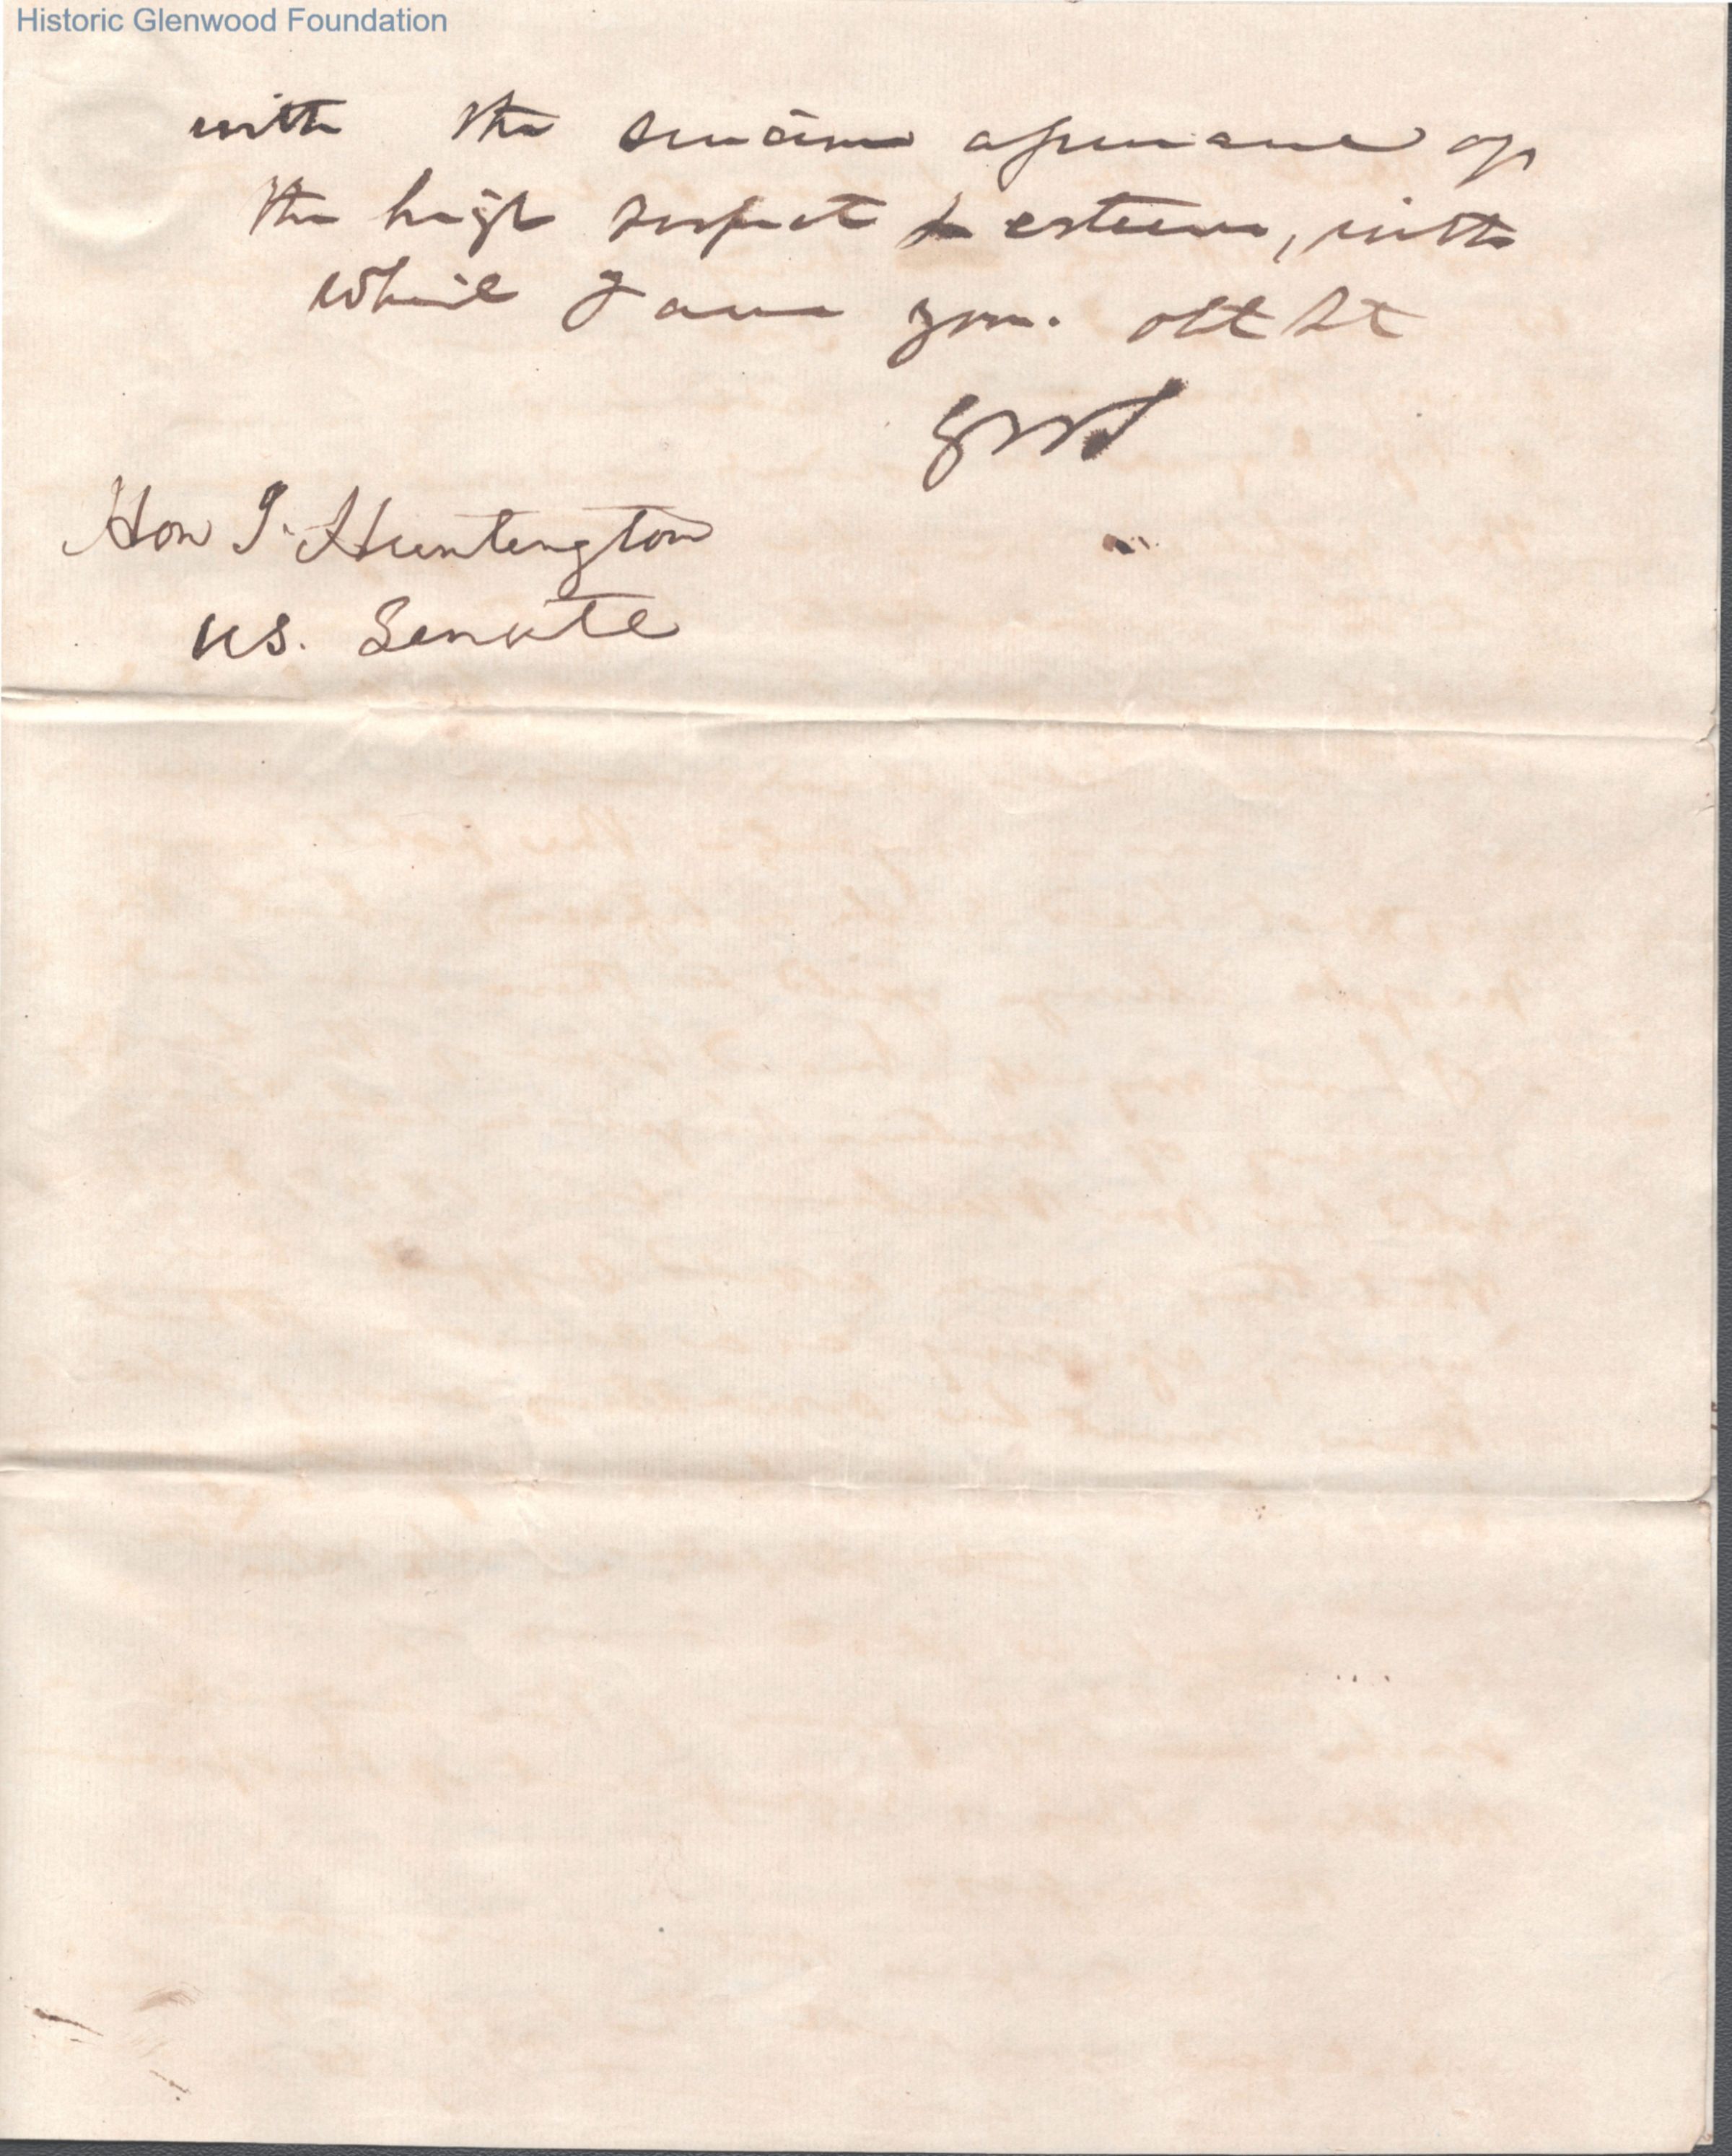 Historic Glenwood Foundation
with the sincere assurance of
the high respect & esteem, with
which I am your. obt St
Hon J. Huntington
US. Senate